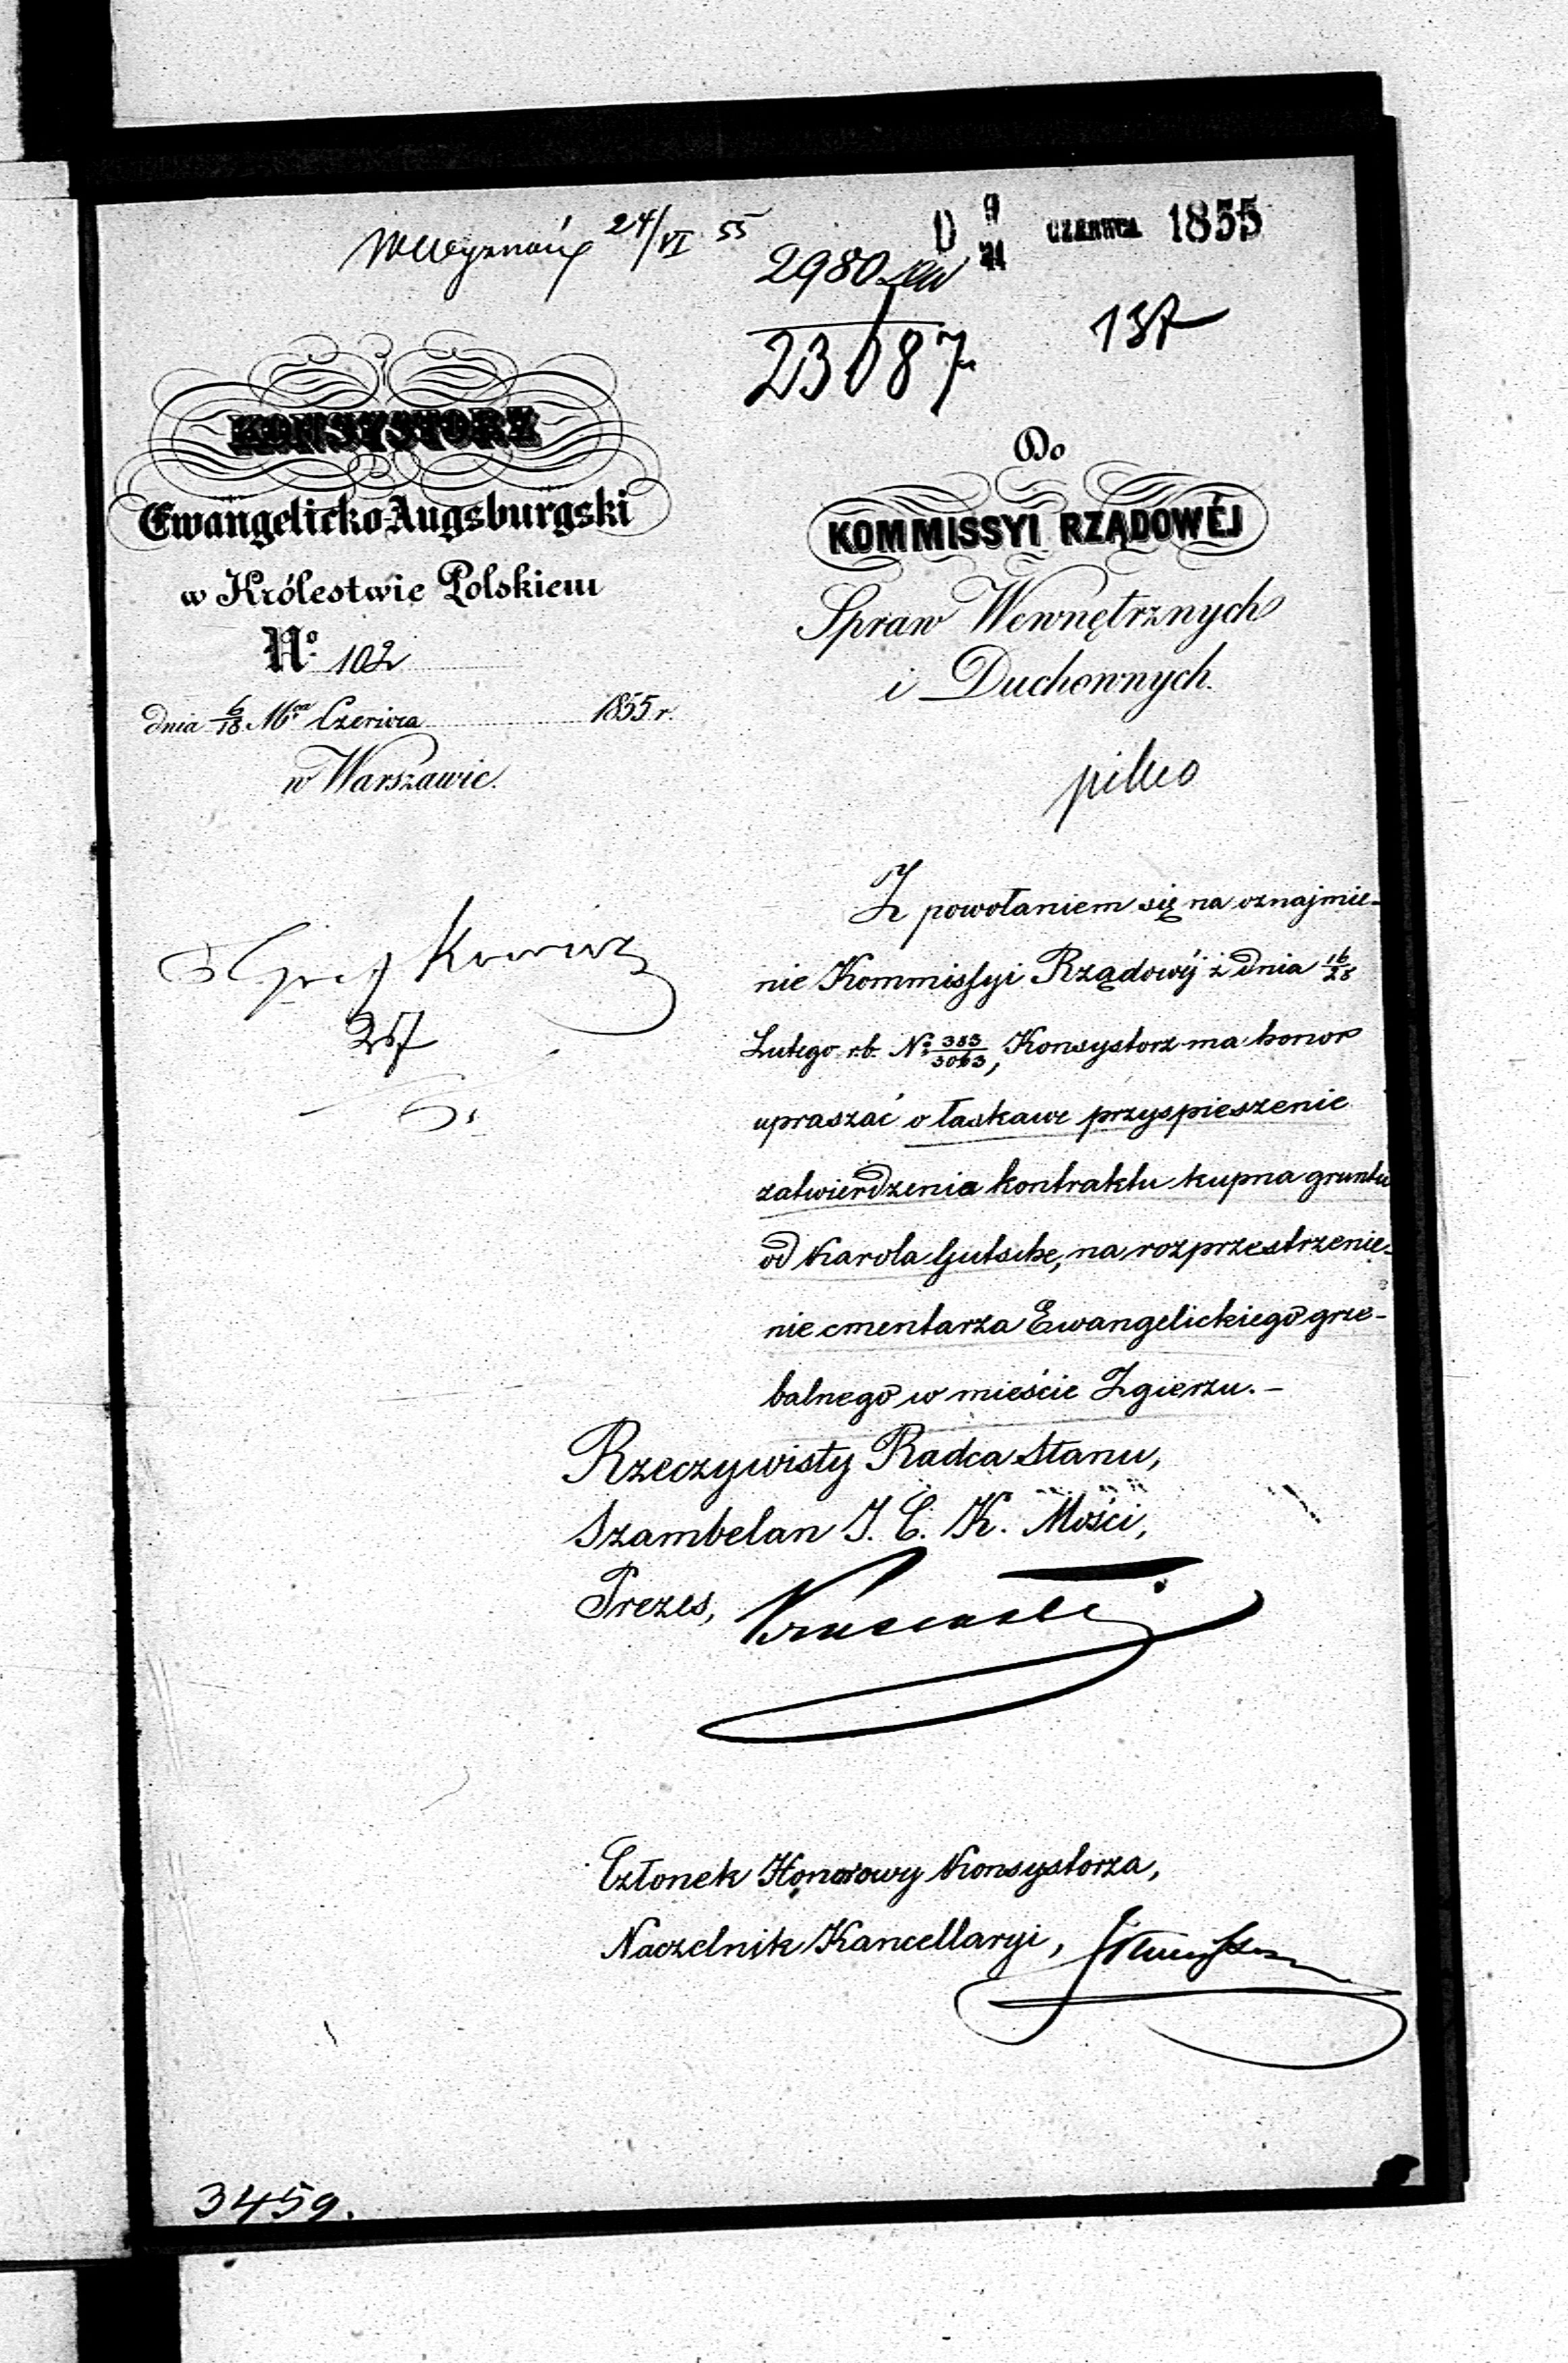 24/VI 55
D 9/21 CZERWCA 1855
2980
23087
137
KONSYSTORZ
Ewangelicko-Augsburgski
w Królestwie Polskiem
No. 102
dnia 6/18 Mca Czerwca 1855 r.
w Warszawie.
Do
KOMMISSYI RZĄDOWÉJ
Spraw Wewnętrznych
i Duchownych.
pilno
Z powołaniem się na oznajmie-
nie Kommissyi Rządowéj z dnia 16/28
Lutego r.b. No. 383/3063, Konsystorz ma honor
upraszać o łaskawe przyspieszenie
zatwierdzenia kontraktu kupna gruntu
od Karola Gutsche, na rozprzestrzenie-
nie cmentarza Ewangelickiego grze-
balnego w mieście Zgierzu. –
Rzeczywisty Radca Stanu,
Szambelan J. C. K. Mości,
Prezes,
Członek Honorowy Konsystorza,
Naczelnik Kancellaryi,
3459.